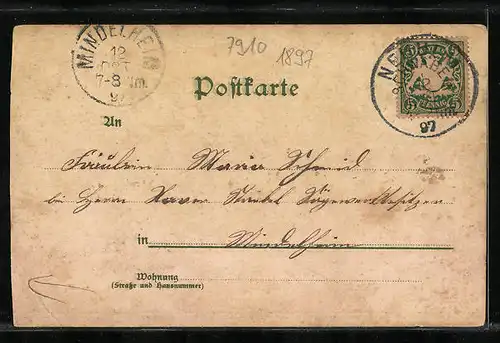 MINDELHEIM
12
OKT
7-8 Nm.
97
7910
1897
Postkarte
97
An
Fräulein Maria Schmid
bei Herrn Xaver Sägewerkbesitzer
in Mindelheim
Wohnung
(Straße und Hausnummer)